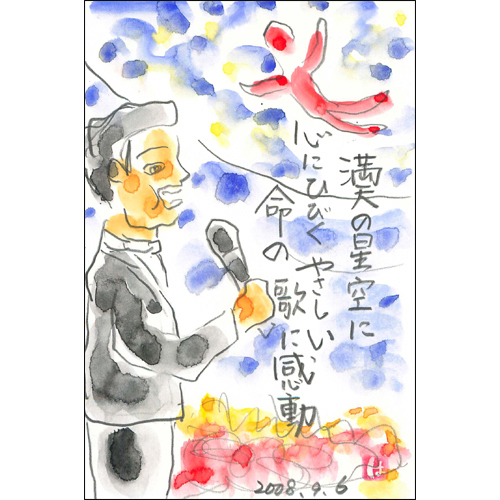 満天の星空に
心にひびく やさしい、
命の歌に感動
2008.9.6
は